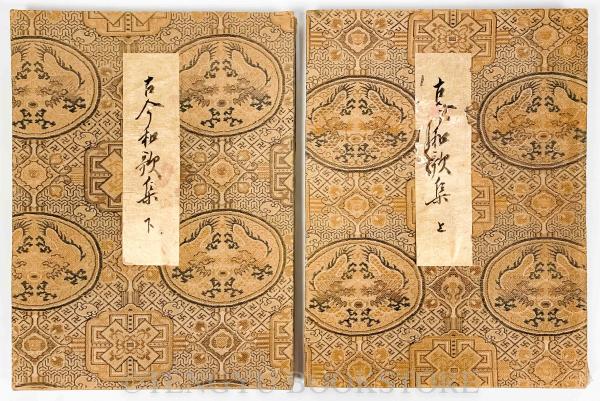 古今和歌集 下
古今和歌集 上
CHENGYU BOOKSTORE